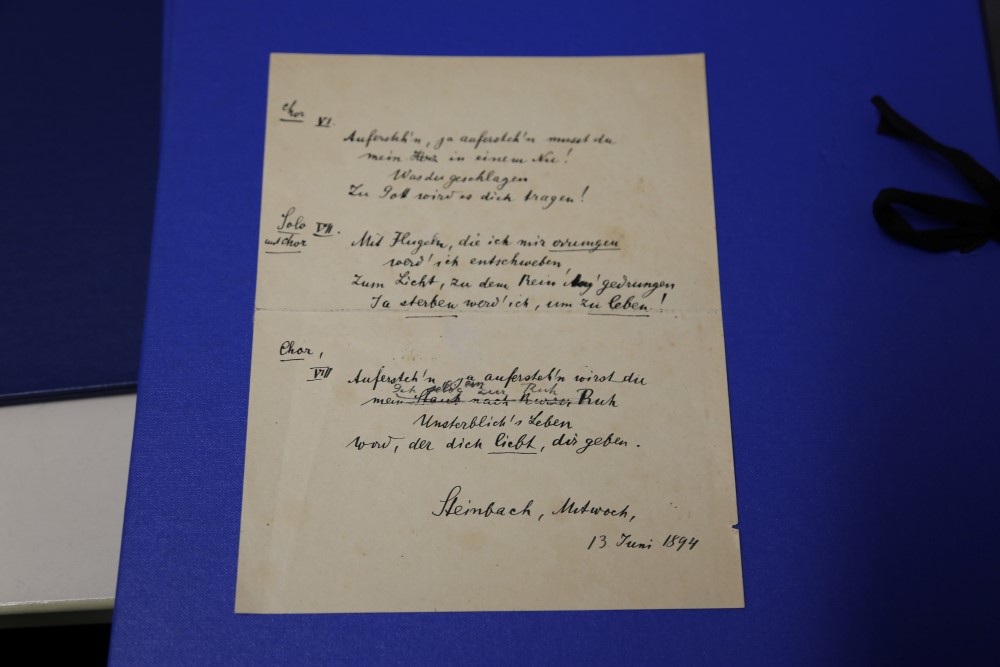 Chor VI.
Aufersteh'n, ja aufersteh'n musst du
mein Herz in einem Nu!
Was du geschlagen
Zu Gott wird es dich tragen!
Solo VII.
mit Chor
Mit Flügeln, die ich mir errungen
werd' ich entschweben,
Zum Licht, zu dem Kein gedrungen
Ja sterben werd' ich, um zu leben!
Chor,
VIII
Aufersteh'n, ja aufersteh'n wirst du
zur Ruh
mein Staub nach Kurzer Ruh
Unsterblich's Leben
wird, der dich liebt, dir geben.
Steinbach, Mitwoch,
13. Juni 1894